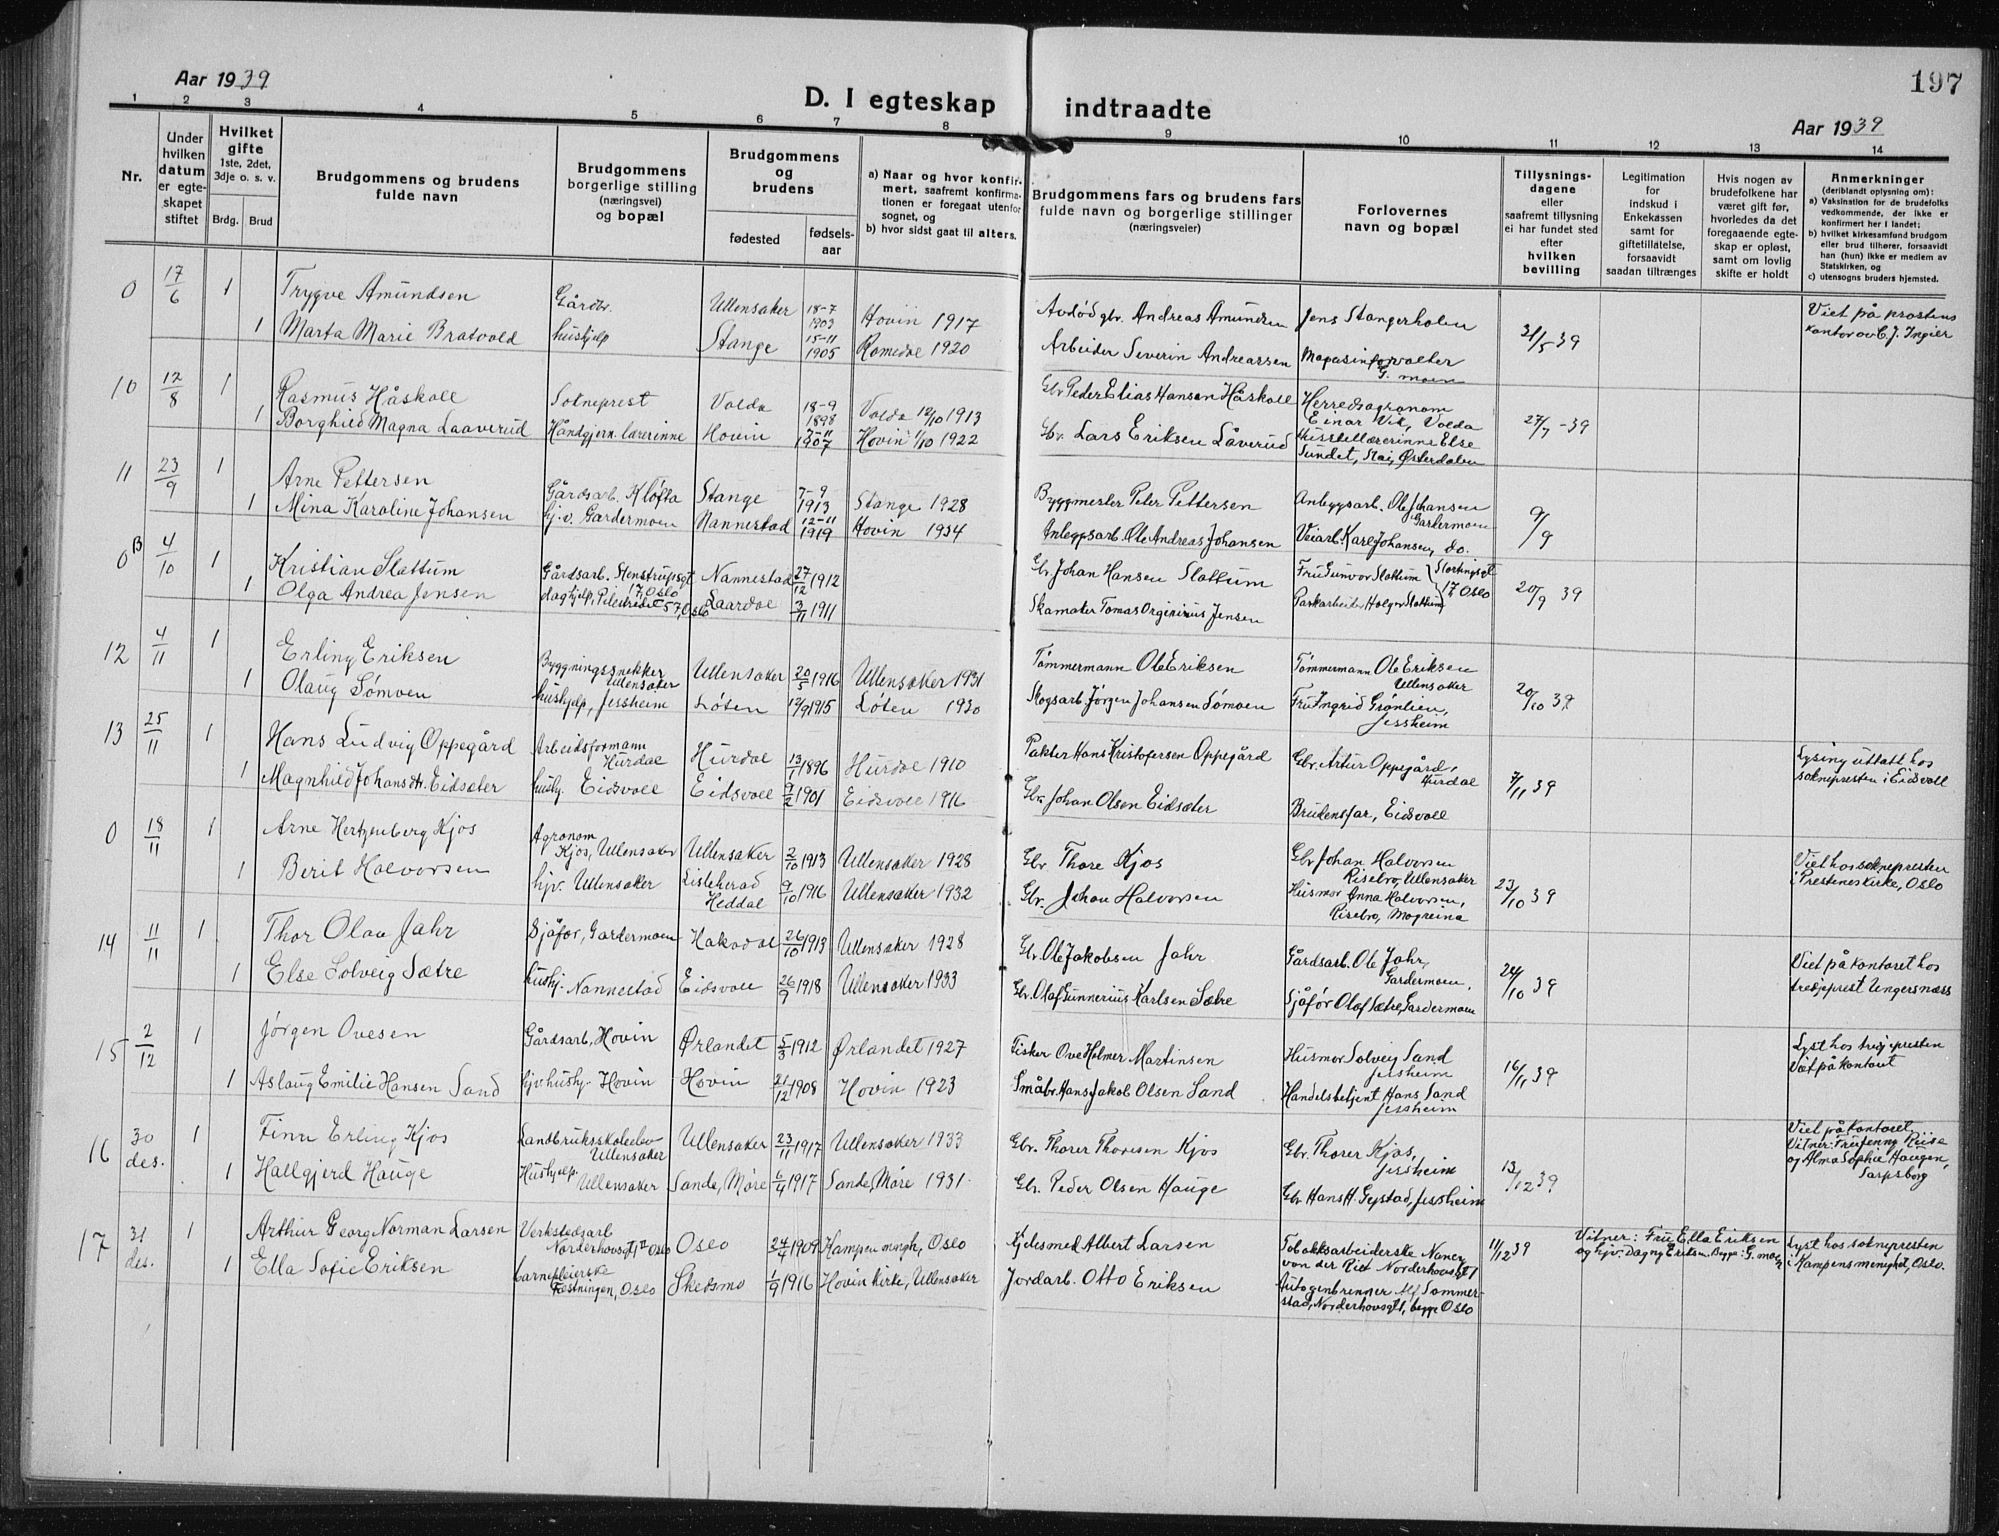 Aar 1939
197
D. I egteskap indtraadte
Aar 1939
1 2 3 4 5 6 7 8 9 10 11 12 13 14
Nr.
Under hvilken datum er egte-skapet stiftet
Hvilket gifte
1ste, 2det, 3dje o. s. v.
Brdg. Brud
Brudgommens og brudens fulde navn
Brudgommens borgerlige stilling (næringsvei) og bopæl
Brudgommens og brudens
fødested
fødsels-aar
a) Naar og hvor konfir-mert, saafremt konfirma-tionen er foregaat utenfor sognet, og
b) hvor sidst gaat til alters.
Brudgommens fars og brudens fars fulde navn og borgerlige stillinger (næringsveier)
Forlovernes navn og bopæl
Tillysnings-dagene eller saafremt tillysning ei har fundet sted efter hvilken bevilling
Legitimation for indskud i Enkekassen samt for giftetillatelse, forsaavidt saadan tiltrænges
Hvis nogen av brudefolkene har været gift før, hvorledes da det foregaaende egte-skap er opløst, samt om lovlig skifte er holdt
Anmerkninger
(deriblandt oplysning om):
a) Vaksination for de brudefolks vedkommende, der ikke er konfirmert her i landet;
b) hvilket kirkesamfund brudgom eller brud tilhører, forsaavidt han (hun) ikke er medlem av Statskirken, og
c) utensogns bruders hjemsted.
0 17/6 1 Trygve Amundsen Gårdbr. Ullensaker 18-7 1903 Hovin 1917 Avdød gbr. Andreas Amundsen Jens Stangerholen 31/5 39 Viet på prostens kontor av C. J. Ingier
1 Marta Marie Bratvold hushjelp Stange 15-11 1905 Romedal 1920 Arbeider Severin Andreassen Magasinforvalter G.moen
10 12/8 1 Rasmus Håskoll Sokneprest Volda 18-9 1898 Volda 12/10 1913 Gbr Peder Elias Hansen Håskoll Herredsagronom Einar Vik, Volda 27/7-39
1 Borghild Magna Laaverud Håndgjern.lærerinne Hovin 7-11 1907 Hovin 1/10 1922 Gbr. Lars Eriksen Låverud Husstellærerinne Else Sundet, Stai, Østerdalen
11 23/9 1 Arne Pettersen Gårdsarb. Kløfta Stange 7-9 1913 Stange 1928 Byggmester Peter Pettersen Anleggsarb. Ole Johansen Gardermoen 9/9
1 Mina Karoline Johansen hj.v. Gardermoen Nannestad 12-11 1919 Hovin 1934 Anleggsarb. Ole Andreas Johansen Veiarb. Karl Johansen, do.
0 B 4/10 1 Kristian Slattum Gårdsarb. Stenstrupsgt 17, Oslo Nannestad 27/12 1912 Gbr Johan Hansen Slattum Fru Gunvor Slattum Stortingsgt 17, Oslo 20/9 39
1 Olga Andrea Jensen daghjelp, Pilestredet 57, Oslo Laardal 3/11 1911 Skomaker Tomas Jensen Parkarbeider Holger Slattum
12 4/11 1 Erling Eriksen Byggningssnekker Ullensaker Ullensaker 20/5 1916 Ullensaker 1931 Tømmermann Ole Eriksen Tømmermann Ole Eriksen Ullensaker 20/10 39
1 Olaug Sømoen hushjelp, Jessheim Løten 12/9 1915 Løten 1930 Skogsarb Jørgen Johansen Sømoen Fru Ingrid Grønlien, Jessheim
13 25/11 1 Hans Ludvig Oppegård Arbeidsformann Hurdal Hurdal 13/1 1896 Hurdal 1910 Pakter Hans Kristofersen Oppegård Gbr. Artur Oppegård, Hurdal 7/11 39 Lysing uttatt hos soknepresten i Eidsvoll
1 Magnhild Johans dt. Eidsæter hushj. Eidsvoll Eidsvoll 9/2 1901 Eidsvoll 1916 Gbr Johan Olsen Eidsæter Brudens far, Eidsvoll
0 18/11 1 Arne Hertzenberg Kjos Agronom Kjos, Ullensaker Ullensaker 2/10 1913 Ullensaker 1928 Gbr Thore Kjos Gbr Johan Halvorsen Risebro, Ullensaker 23/10 39 Viet hos soknepresten i Prestenes kirke, Oslo
1 Berit Halvorsen hjv. Ullensaker Lisleherad Heddal 9/10 1916 Ullensaker 1932 Gbr. Johan Halvorsen Husmor Anna Halvorsen, Risebro, Mogreina
14 11/11 1 Thor Olav Jahr Sjåfør, Gardermoen Hakadal 26/10 1913 Ullensaker 1928 Gbr. Ole Jakobsen Jahr Gårdsarb. Ole Jahr, Gardermoen, 24/10 39 Viet på kontoret hos tredjeprest Ungersnæss
1 Else Solveig Sætre hushj. Nannestad Eidsvoll 26/9 1918 Ullensaker 1933 Gbr. Olaf Gunnerius Karlsen Sætre Sjåfør Olaf Sætre, Gardermoen
15 2/12 1 Jørgen Ovesen Gårdsarb, Hovin Ørlandet 5/3 1912 Ørlandet 1927 Fisker Ove Holmer Martinsen Husmor Solveig Sand Jessheim 16/11 39 Lyst hos tredjepresten Viet på kontoret
1 Aslaug Emilie Hansen Sand hjv hushj. Hovin Hovin 21/12 1908 Hovin 1923 Småbr. Hans Jakob Olsen Sand Handelsbetjent Hans Sand Jessheim
16 30 des. 1 Finn Erling Kjos Landbruksskoleelev Ullensaker Ullensaker 23/11 1917 Ullensaker 1933 Gbr. Thorer Thoresen Kjos Gbr. Thorer Kjos, Jessheim 13/12 39 Viet på kontoret, Vitner: Fru Jenny Riise og Alma Sophie Haugen, Sarpsborg
1 Hallgjerd Hauge Hushjelp. Ullensaker Sande, Møre 6/4 1917 Sande, Møre 1931 Gbr. Peder Olsen Hauge Gbr. Hans H. Gystad, Jessheim
17 31 des. 1 Arthur Georg Norman Larsen Verkstedsarb Norderhovsgt 1 II Oslo Oslo 24/4 1909 Kampen mngh, Oslo Kjelesmed Albert Larsen Tobakksarbeiderske Nancy von der Rict Norderhovsgt 1 11/12 39 Vitner: Fru Ella Eriksen og hjv. Dagny Eriksen. Begge G.moen Lyst hos soknepresten i Kampens menighet, Oslo.
1 Ella Sofie Eriksen barnepleierske Festningen, Oslo Skedsmo 1/9 1916 Hovin kirke, Ullensaker Jordarb. Otto Eriksen Autogenbrenner Alf Sommerstad, Norderhovsgt 1, begge Oslo